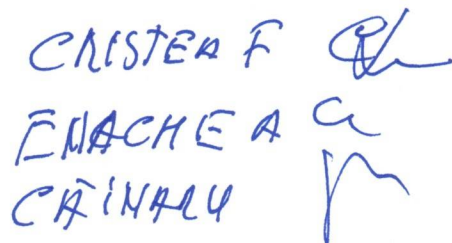 CRISTEA F
ENACHE A
CĂINARU